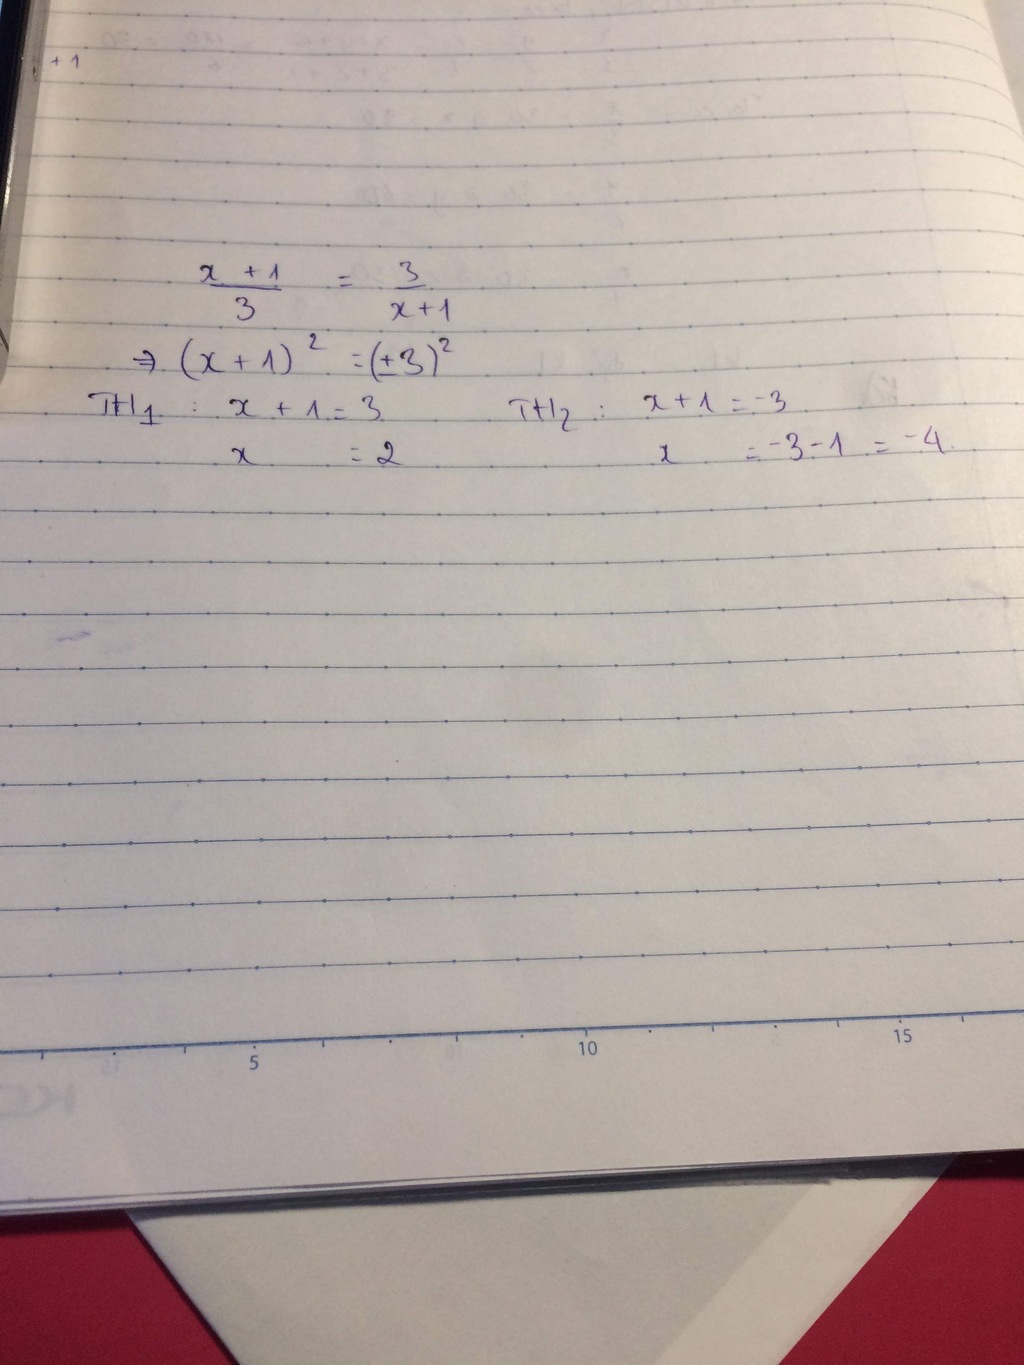 + 1
x + 1 / 3 = 3 / x + 1
⇒ (x + 1)² = (±3)²
TH₁ : x + 1 = 3 TH₂ : x + 1 = -3
x = 2 x = -3 - 1 = -4.
5 10 15